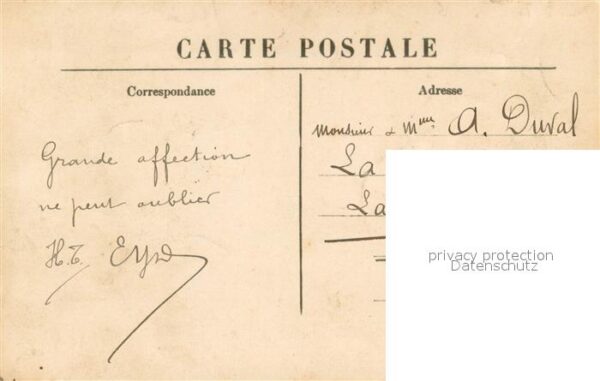 CARTE POSTALE
Correspondance
Adresse
Monsieur & Mme A. Duval
La
La
Grande affection
ne peut oublier
H.T.
privacy protection
Datenschutz